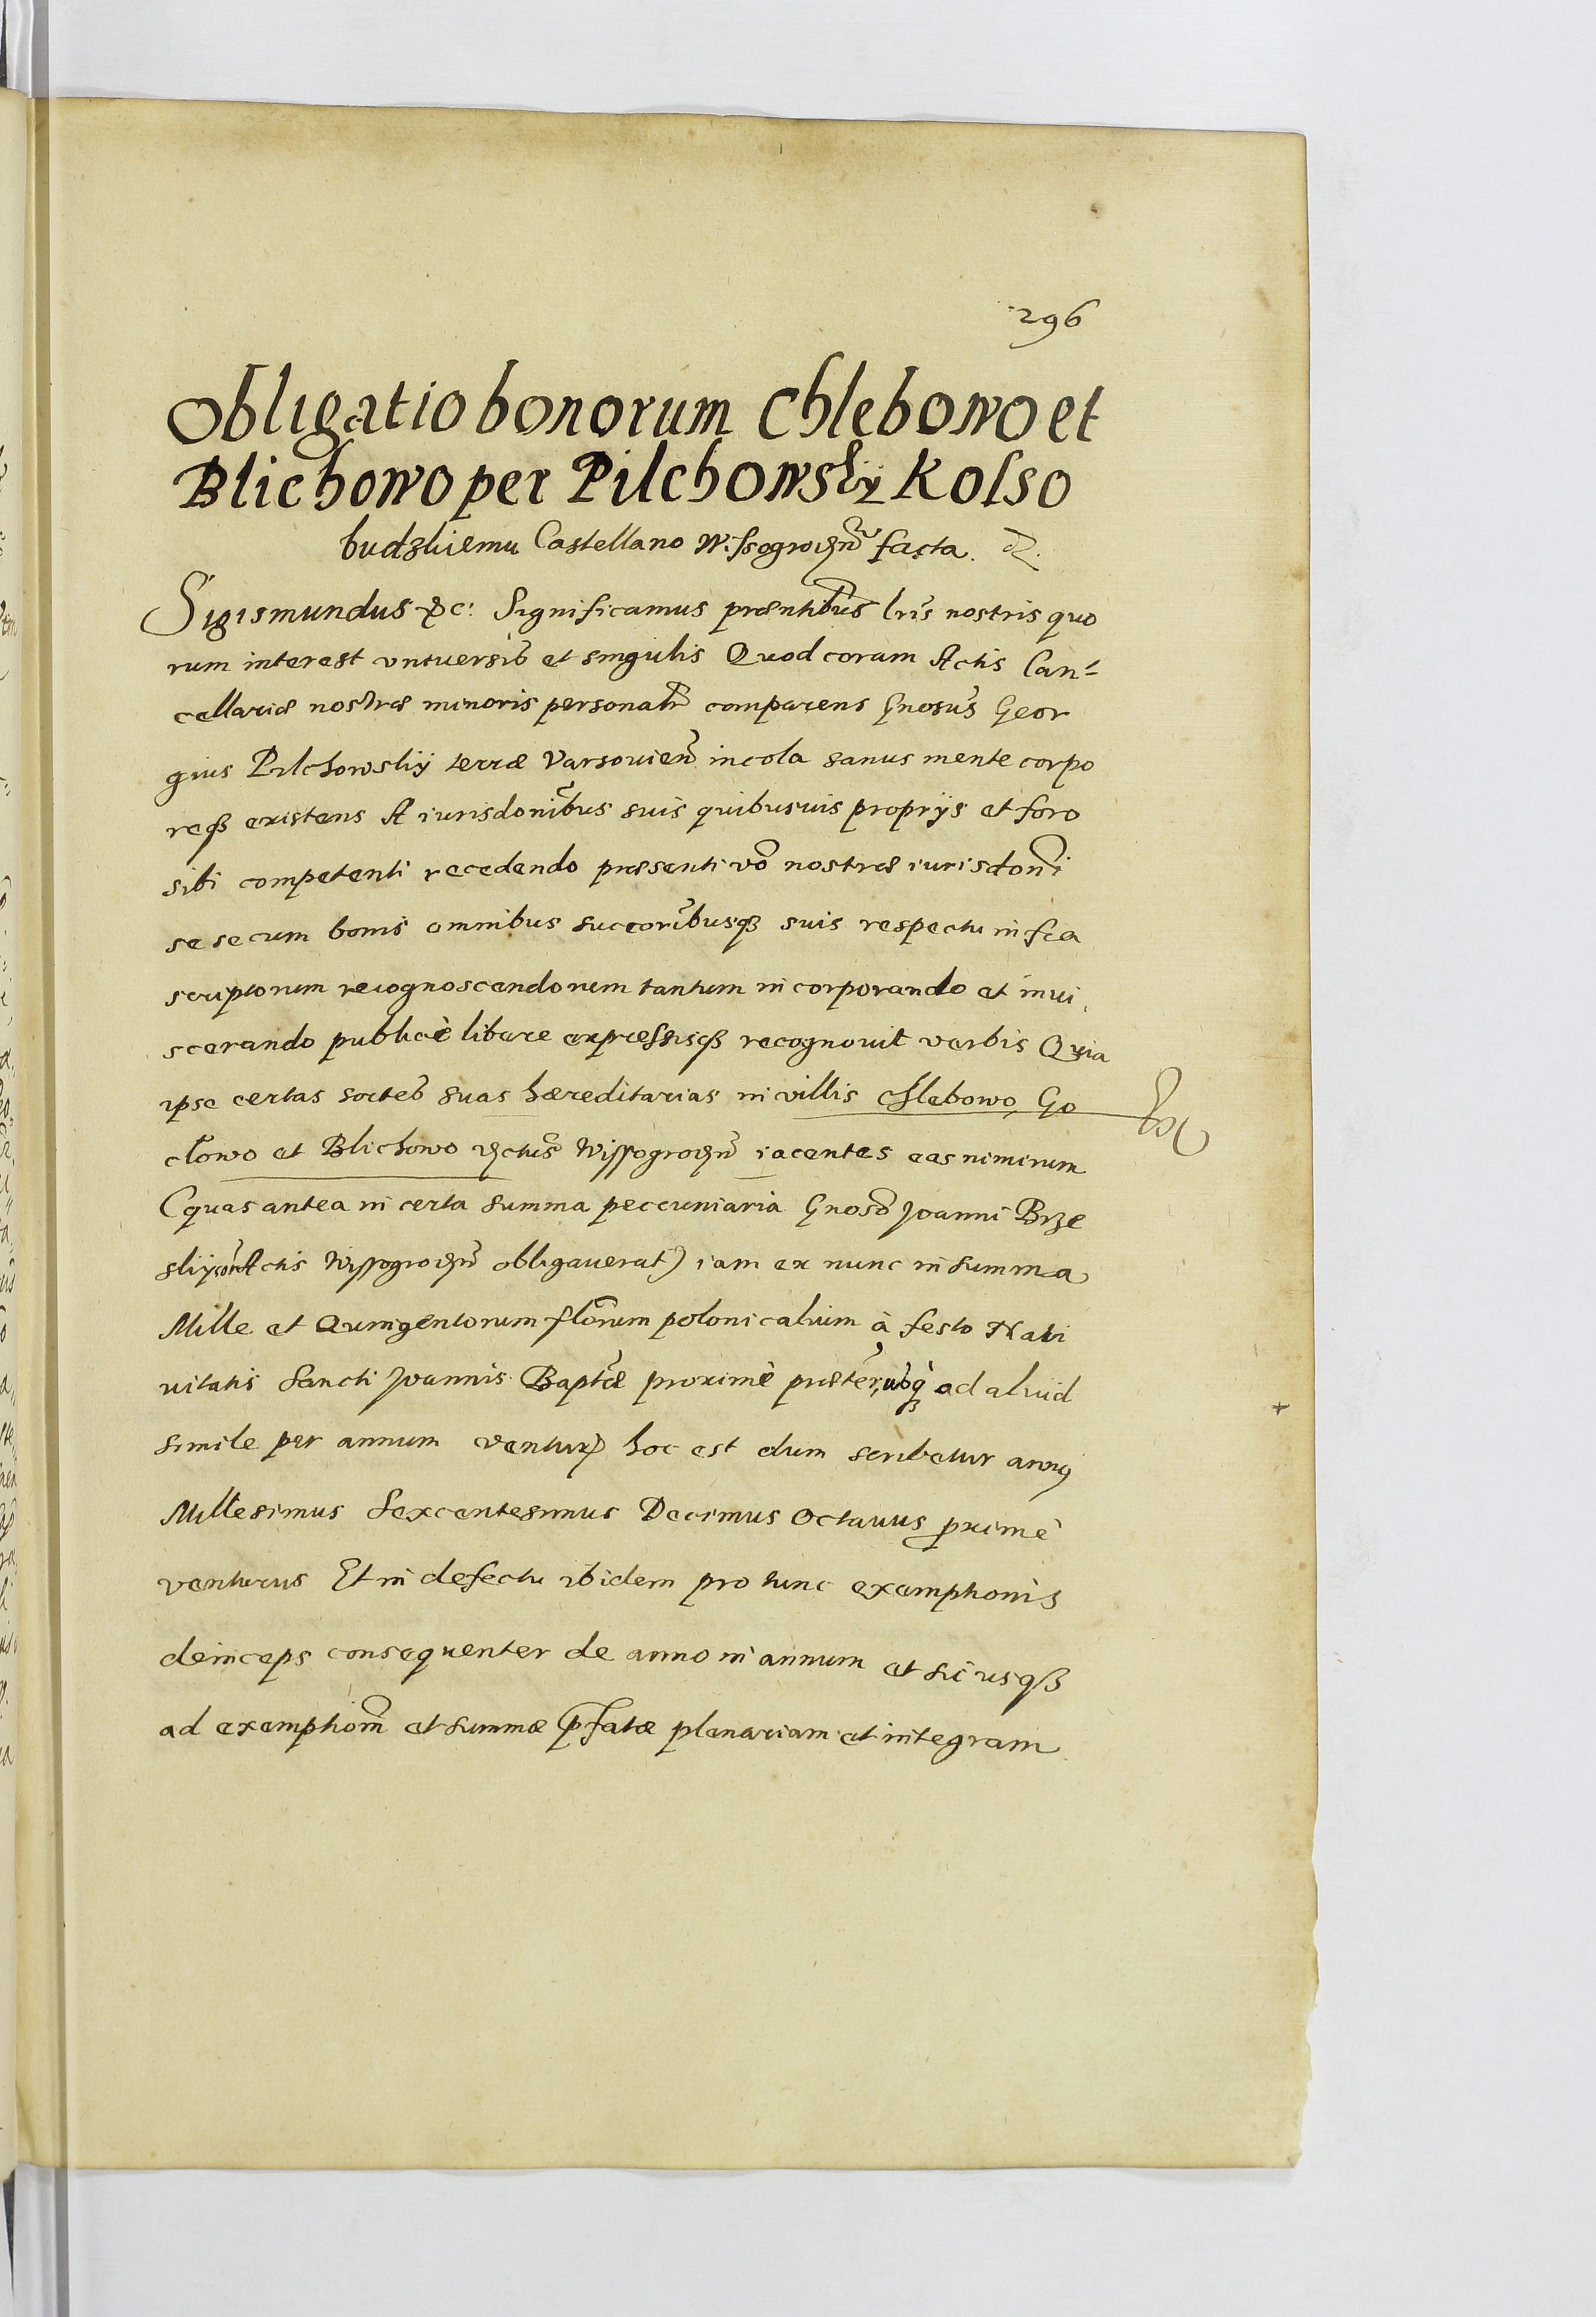 296
Obligatio bonorum Chlebowo et
Blichowo per Pilchowskÿ Kolso
budzkiemu Castellano Wissogrodien facta.
Sigismundus &c: Significamus præntibus lris nostris quo
rum interest vniuersis et singulis Quod coram Actis Can=
cellariæ nostræ minoris personalr comparens Gnosus Geor
gius Pilchowskÿ terræ Varsouien incola sanus mente corpo
reqꝫ existens A iurisdonibus suis quibusuis proprÿs et foro
sibi competenti recedendo præsenti vo nostræ iurisdoni
se se cum bonis omnibus succoribusqꝫ suis respectu infra
scriptorum recognoscendorum tantum incorporando et inui
scerando publicè libere expressisqꝫ recognouit verbis Quia
ipse certas sortes suas hæreditarias in villis Chlebowo, Go
clowo et Blichowo dictus Wissogrodien iacentes eas nimirum
(quas antea in certa summa peccuniaria Gnoso Joanni Brze
skÿ Actis Wissogrodien obligauerat) iam ex nunc in summa
Mille et Quingentorum florum polonicalium à festo Nati
uitatis Sancti Joannis Baptæ proximè præter, usqꝫ ad aliud
simile per annum ventur hoc est dum scribetur annus
Millesimus Sexcentesimus Decimus Octauus proximè
venturus Et in defectu ibidem pro tunc exemptionis
deinceps consequenter de anno in annum et sic usqꝫ
ad exemptiom et summæ pfatæ plenariam et integram